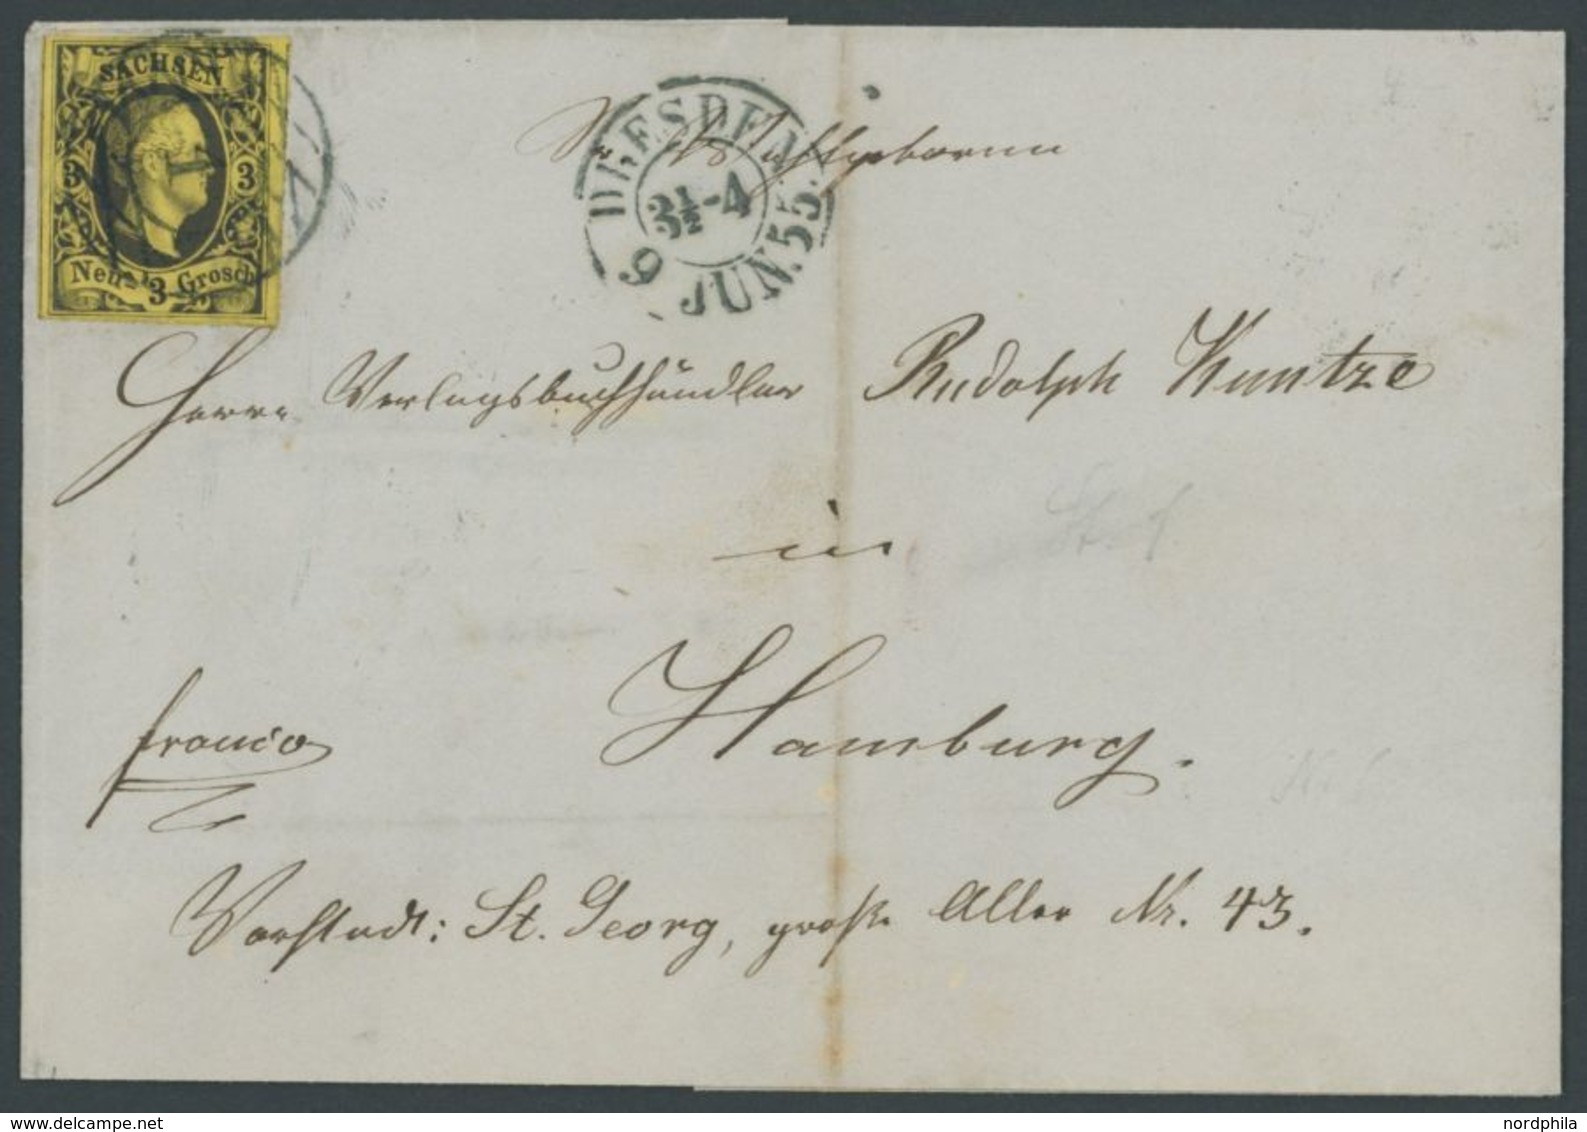 SACHSEN
3 3
Neu- 3 Grosch
DRESDEN
3½-4
9 JUN. 55.
Sr. Wohlgeboren
Herrn Verlagsbuchhändler Rudolph Kuntze
in
Hamburg.
franco
Vorstadt: St. Georg, große Allee Nr. 43.
delcampe.net
nordphila